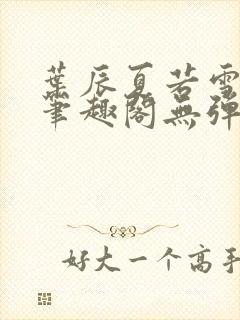 葉辰夏若雪
筆趣閣無彈
好大一个高手